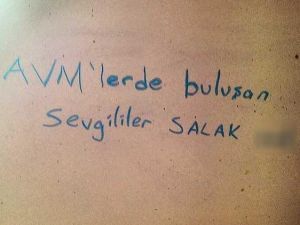 AVM'lerde buluşan
Sevgililer SALAK